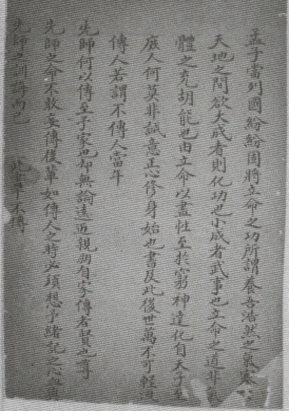 孟子當列國紛紛固將立命之功所謂養吾浩然之氣塞
天地之間欲大成者則化功也小成者武事也立命之道非氣
體之充胡能也由立命以盡性至於窮神達化自天子至
庶人何莫非誠意正心修身始也書及此後世萬不可輕洩
傳人若謂不傳人當年
先師何以傳至予家也却無論遠近親朋有家傳者賢也尊
先師之命不敢妄傳後輩如傳人之時必須想予緒記之心血與
先師之訓誨而已
此書不傳